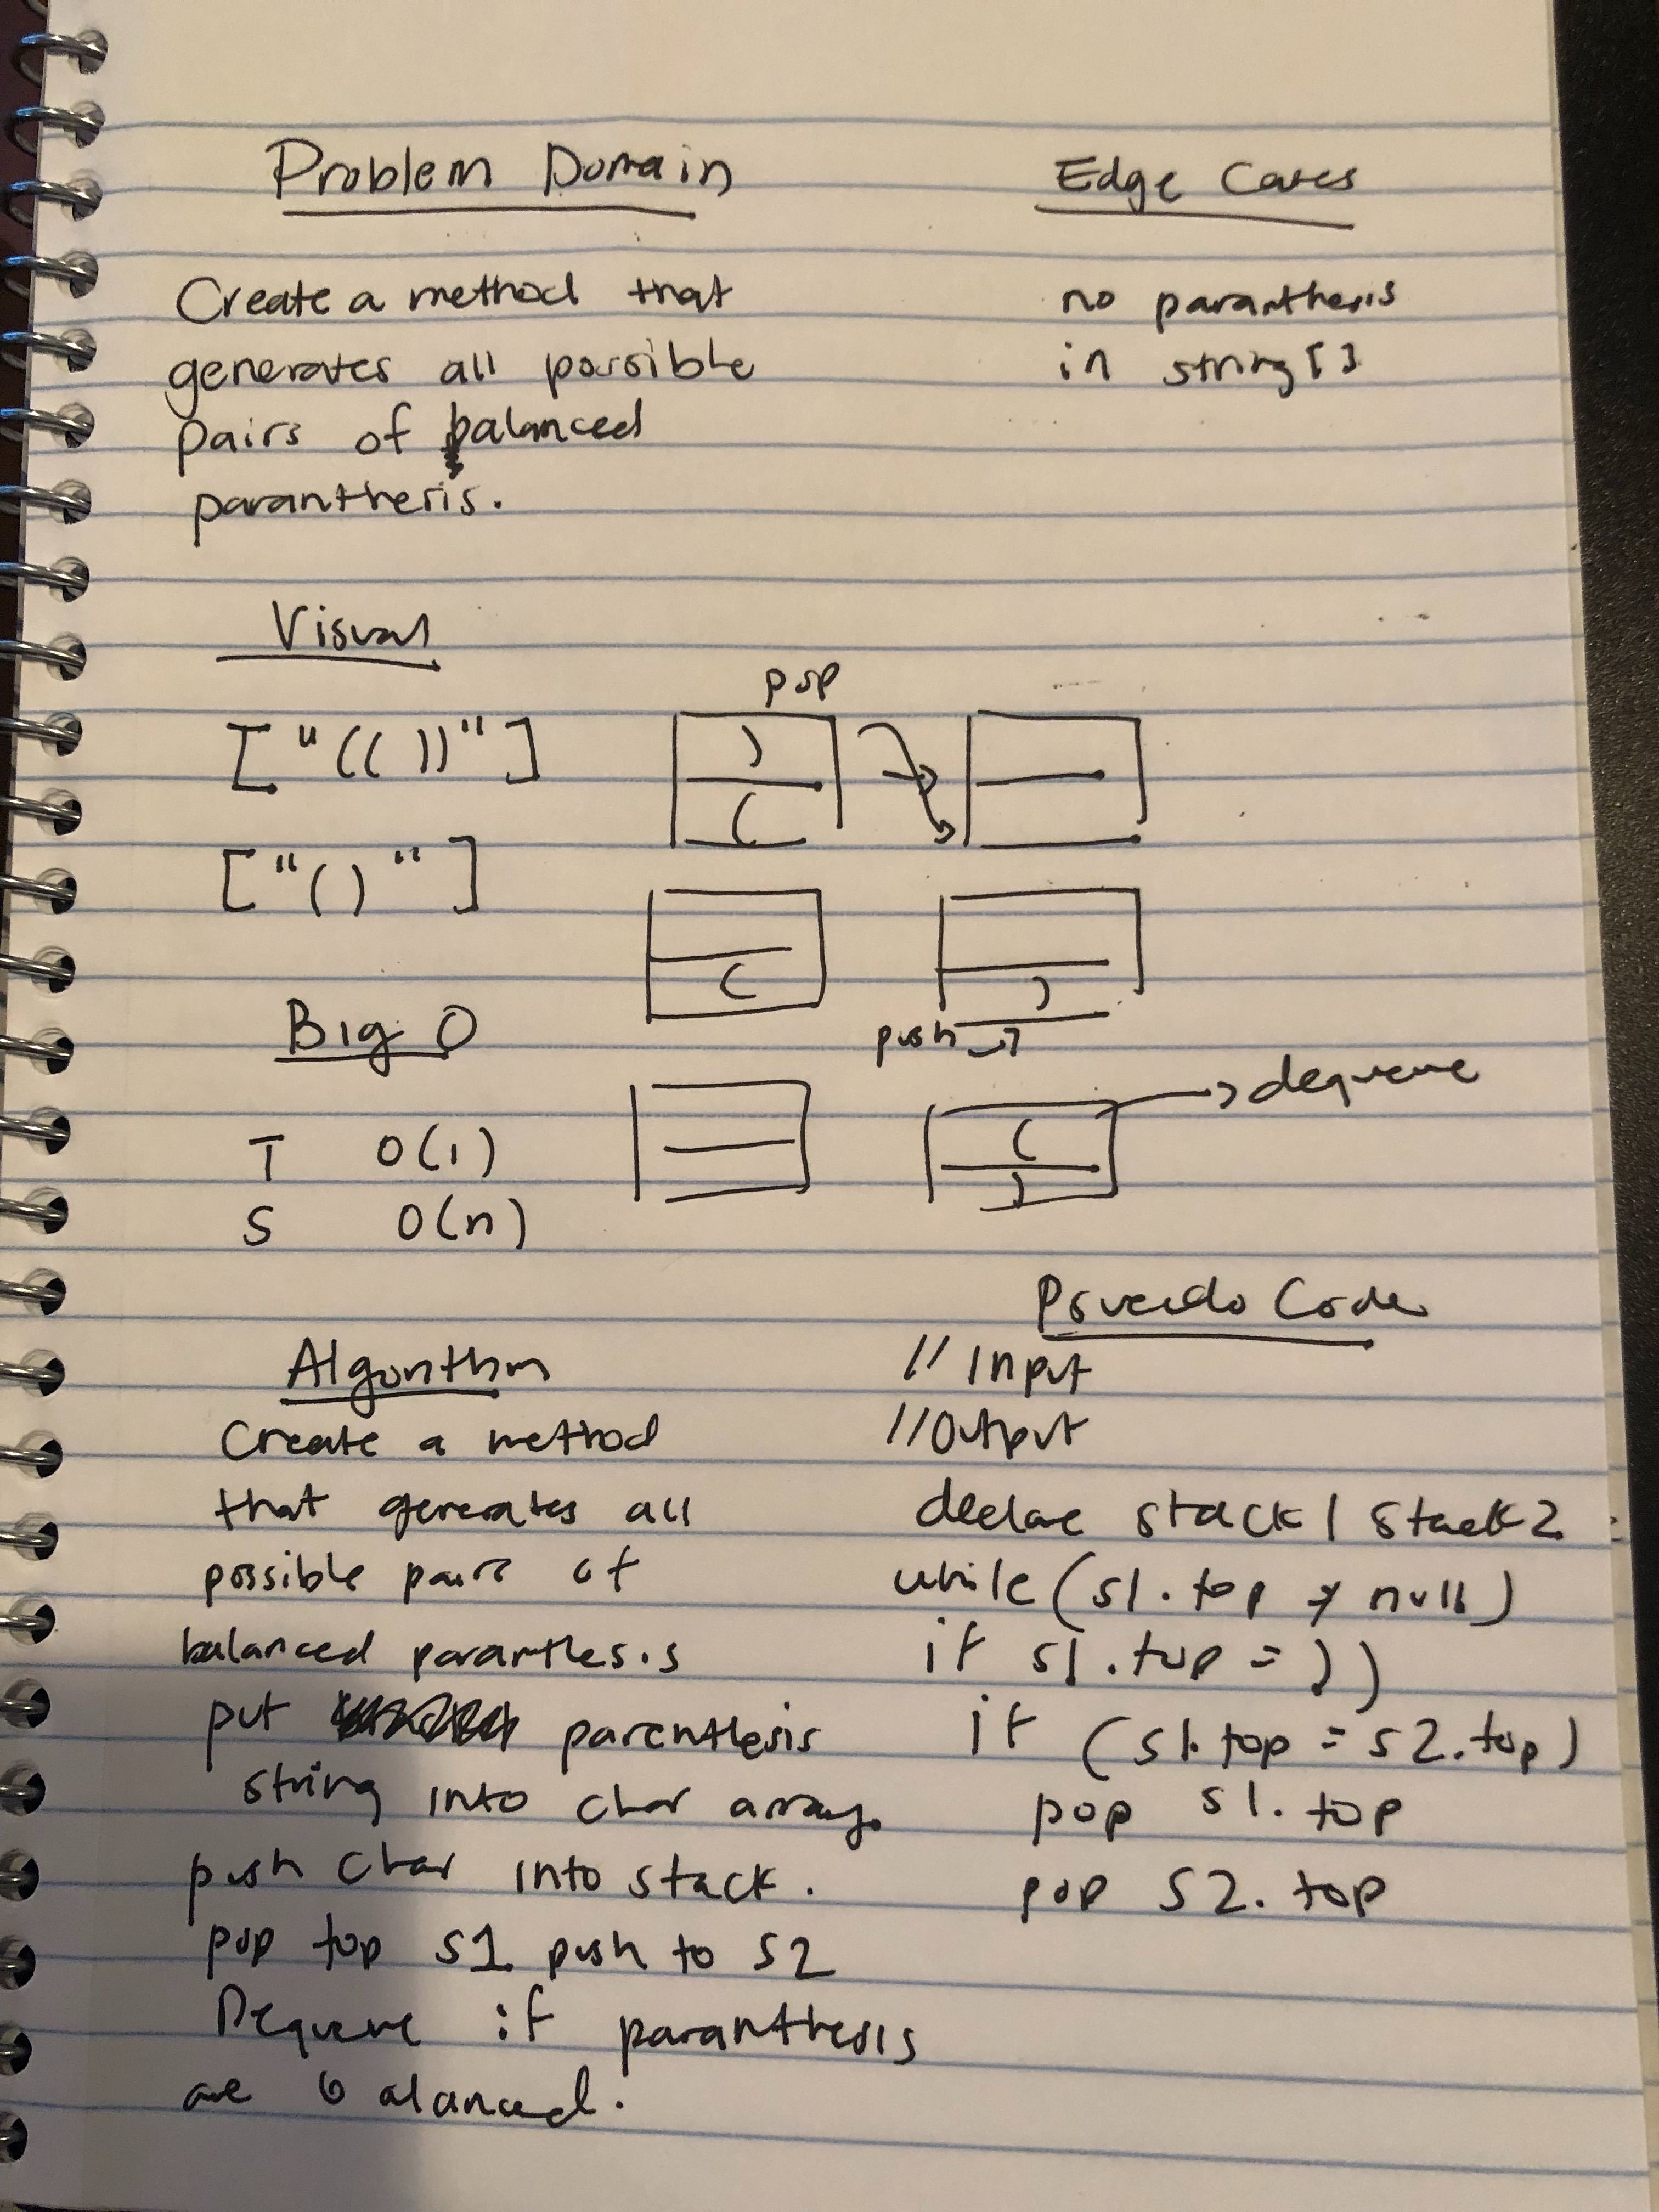 Problem Domain
Create a method that
generates all possible
pairs of balanced
paranthesis.
Edge Cases
no paranthesis
in string[]
Visual
["(())"]
["()"]
pop
)
(
(
)
push
dequeue
(
)
Big O
T O(1)
S O(n)
Algorithm
Create a method
that generates all
possible pairs of
balanced paranthesis
put parenthesis
string into char array.
push char into stack.
pop top S1 push to S2
Dequeue if paranthesis
are balanced.
Psuedo Code
// Input
//Output
declare stack1 stack2
while (s1.top ≠ null)
if s1.top = ))
if (s1.top = s2.top)
pop s1.top
pop s2.top